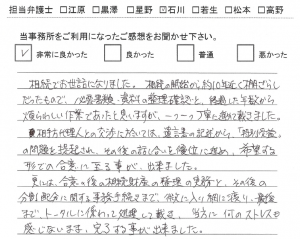 担当弁護士 □江原 □黒澤 □星野 ☑石川 □若生 □松本 □高野
当事務所をご利用になったご感想をお聞かせ下さい。
☑ 非常に良かった □ 良かった □ 普通 □ 悪かった
相続でお世話になりました。相続の開始から約10年近く棚ざらし
だったもので、必要書類・資料の整理確認と、経過した年数から
煩らわしい作業であったと思いますが、一つ一つ丁寧に進めて戴きました。
相手方代理人との交渉に於いては、遺言書の記述から「特別受益」
の問題を提起され、その後の話し合いを優位に進め、希望する
形での合意に至る事が出来ました。
更には、合意の後の相続財産の整理の実務と、その後の
分割配分に関する事務手続きまで、微に入り細に渡り、最後
まで、トータルに係わって処理して戴き、当方に何のストレスも
感じないまま、完了する事が出来ました。